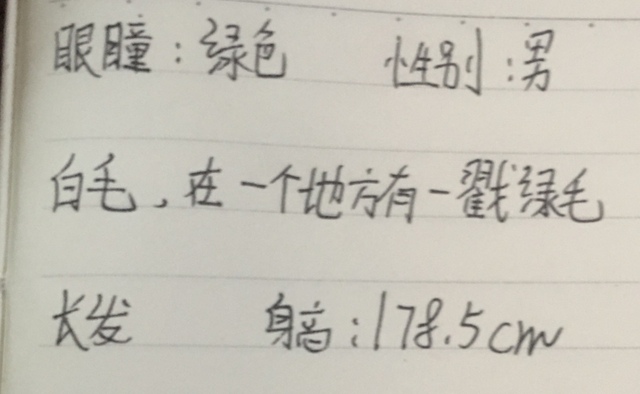 眼瞳：绿色 性别：男
白毛，在一个地方有一戳绿毛
长发 身高：178.5cm